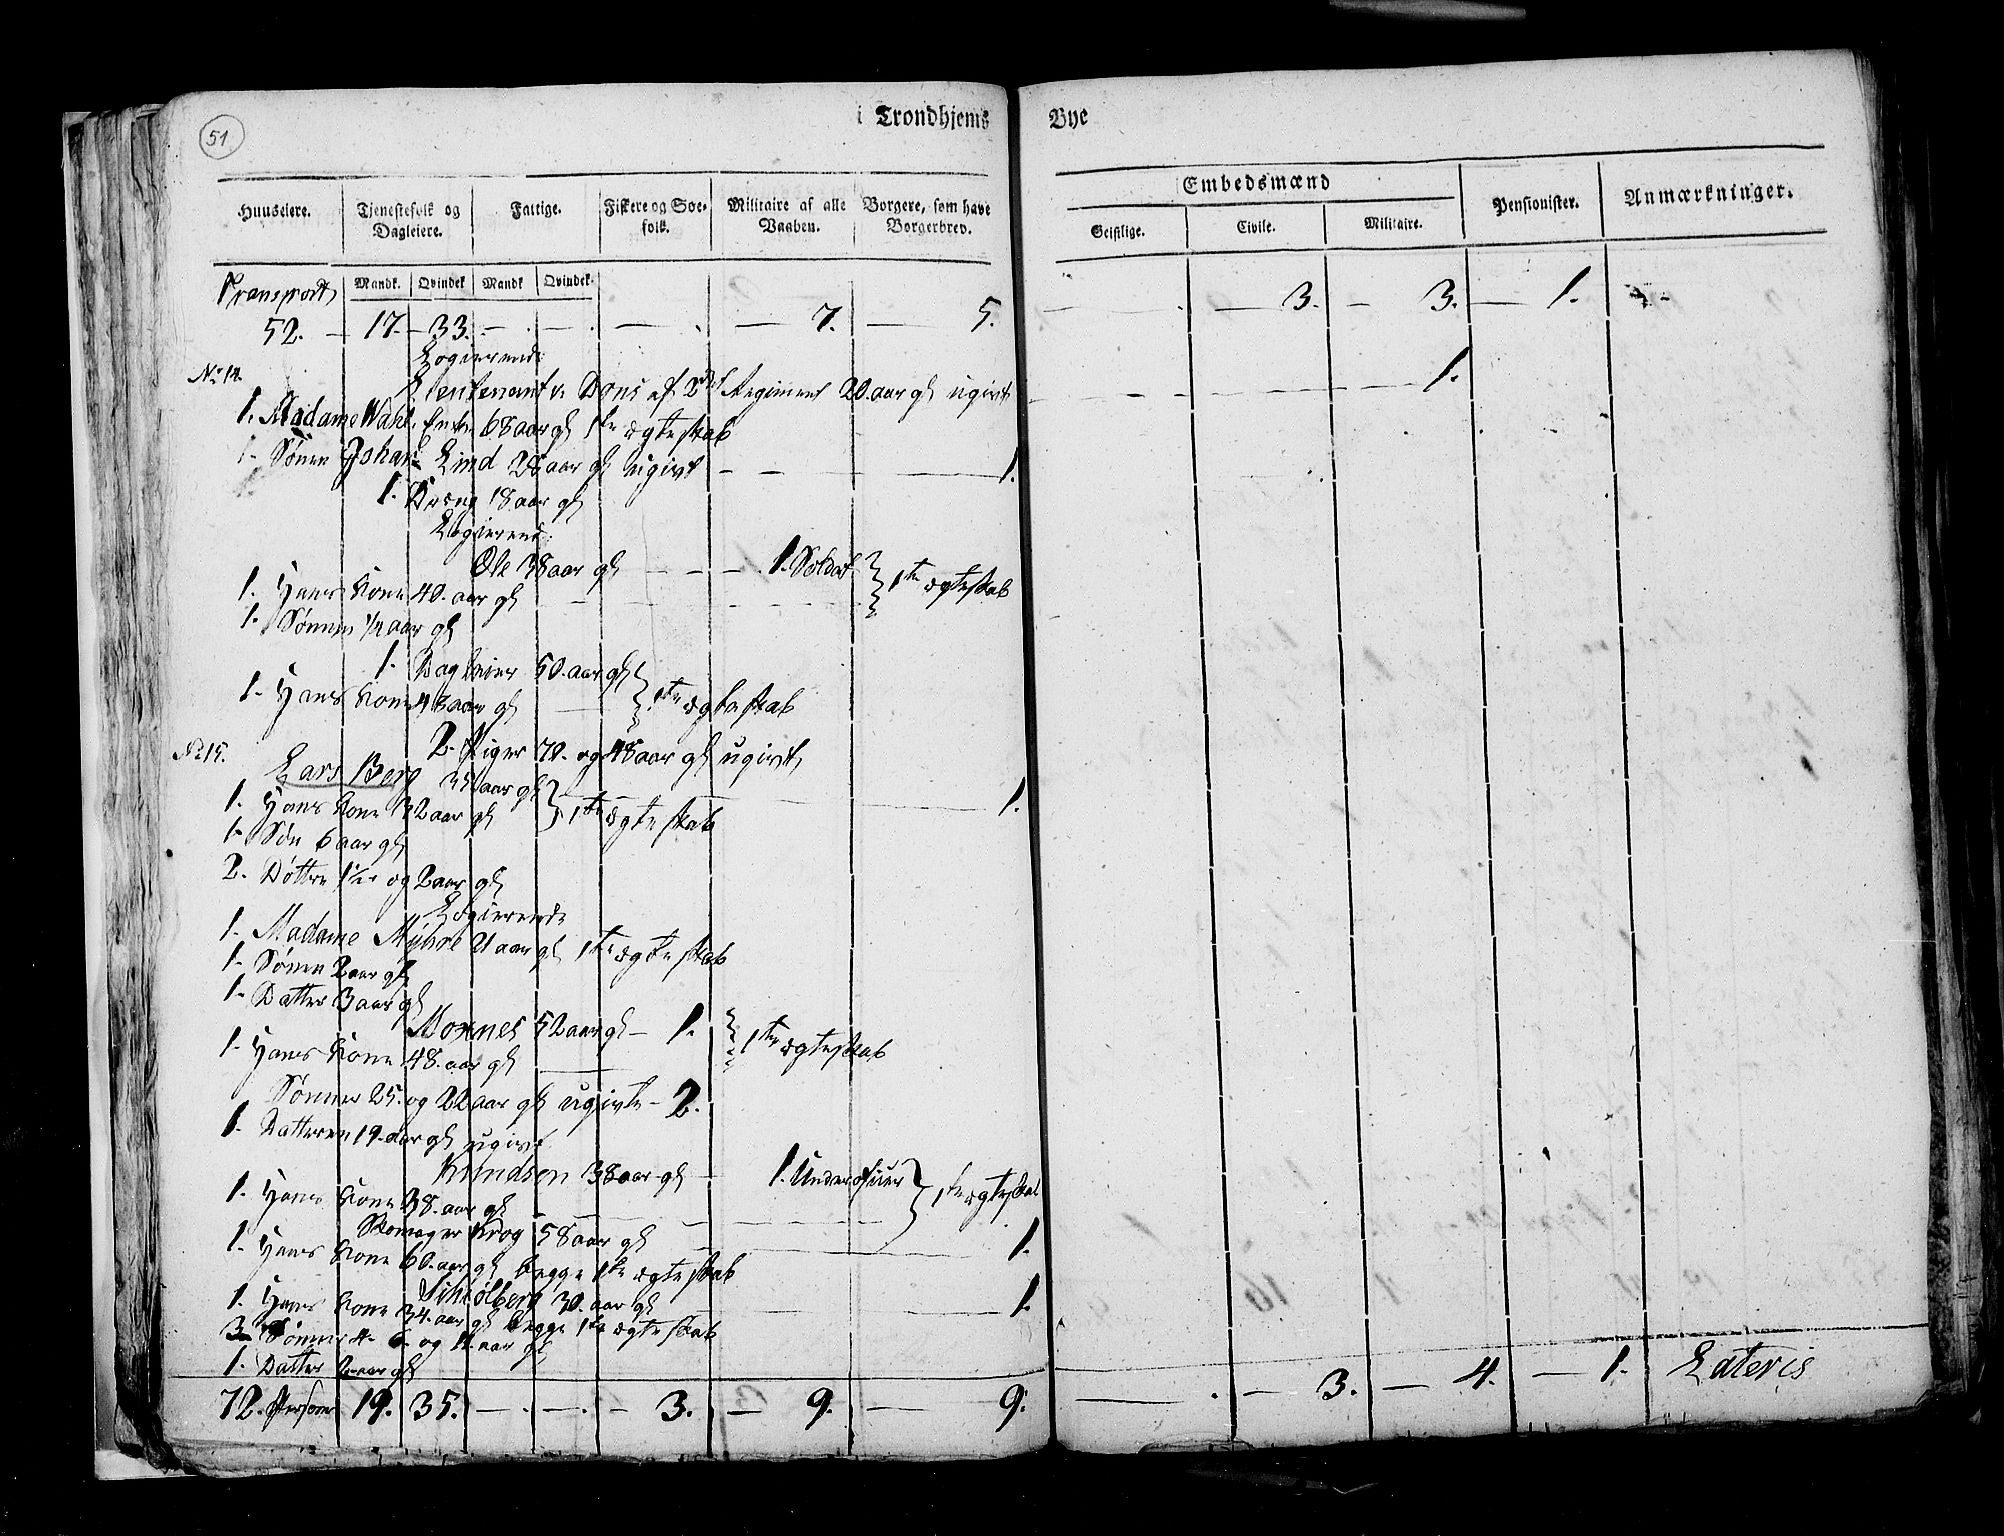 51
i Trondhjems Bye
Huuseiere. Tjenestefolk og Dagleiere. Fattige. Fiskere og Søefolk. Militaire af alle Vaaben. Borgere, som have Borgerbrev. Embedsmænd Pensionister. Anmærkninger.
Geistlige. Civile. Militaire.
Mandk. Qvindek Mandk Qvindek.
Transport
52. — 17. — 33. — . — . — . — 7. — 5. — . — 3. — 3. — 1.
Logierende:
No 14. Lieutenant v. Dons af 2det Regiment 20. aar gl ugivt 1.
1. Madame Wahl, Enke 68 aar gl 1te ægteskab
1. Sønen Johan Lind 28 aar gl ugivt — — 1.
1. Dreng 18 aar gl
Logierend:
Ole 38 aar gl — — 1. Soldat } 1te ægteskab
1. Hans Kone 40. aar gl
1. Sønnen 1/4 aar gl
1. Dagleier 50. aar gl } 1te ægteskab
1. Hans Kone 43 aar gl
2. Piger 70. og 48 aar gl ugivt,
No 15. Lars Berg 35 aar gl } 1te ægteskab 1.
1. Hans Kone 32 aar gl
1. Søn 6 aar gl
2. Døttre 1½ og 2 aar gl
Logierende
1. Madame Myhre 21 aar gl 1te ægteskab
1. Sønen 2 aar gl
1. Datter 3 aar gl
Moxnes 52 aar gl — 1. } 1te ægteskab
1. Hans Kone 48. aar gl
Sønner 25. og 22 aar gl ugivte — 2.
1. Datteren 19. aar gl ugivt
Knudson 38 aar gl — 1. Underofficer } 1te ægteskab
1. Hans Kone 38. aar gl
Skomager Krog 58 aar gl — 1.
1. Hans Kone 60. aar gl begge 1te ægteskab
Schiølberg 30. aar gl — 1.
1. Hans Kone 34. aar gl begge 1te ægteskab
3. Sønner 4. 6. og 11. aar gl
1. Datter 2 aar gl
72. Personer 19. 35. — . — . — 3. — 9. — 9. — . — 3. — 4. — 1. Lateris